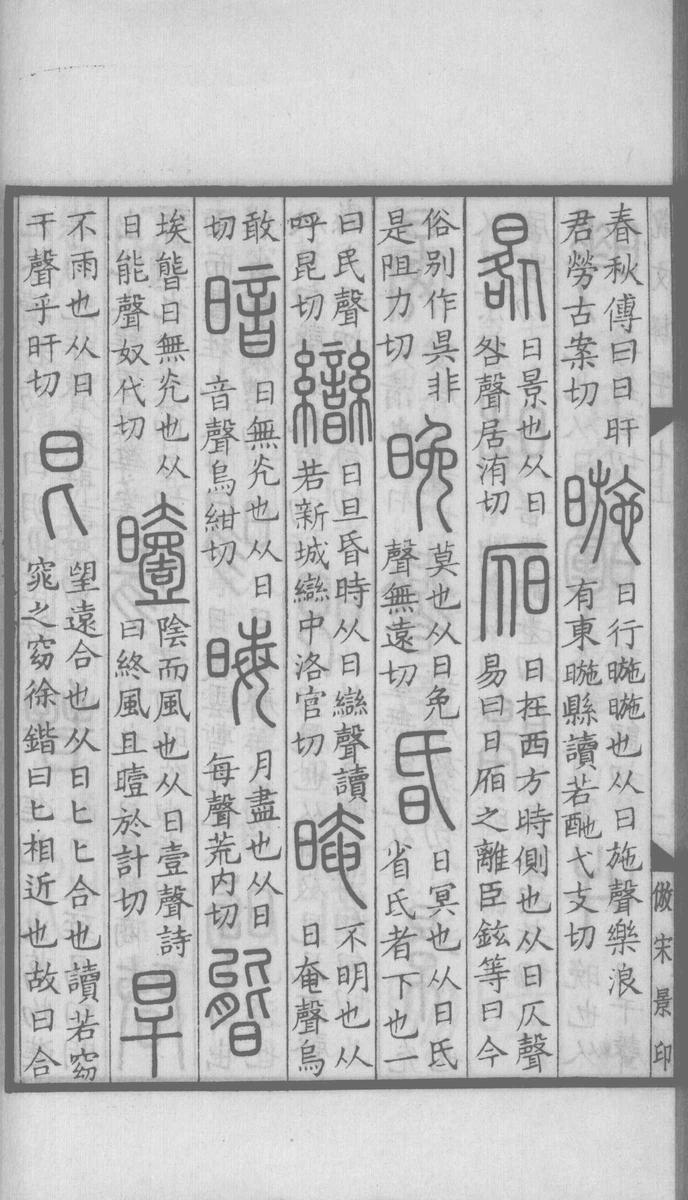 春秋傳曰日旰
君勞古案切
暆
日行暆暆也从日施聲樂浪
有東暆縣讀若酏弋支切
晷
日景也从日
咎聲居洧切
昃
日在西方時側也从日仄聲
易曰日昃之離臣鉉等曰今
俗别作吳非
是阻力切
晚
莫也从日免
聲無遠切
昏
日冥也从日氐
省氐者下也一
曰民聲
呼昆切
曫
日旦昏時从日䜌聲讀
若新城䜌中洛官切
晻
不明也从
日奄聲烏
敢
切
暗
日無光也从日
音聲烏紺切
晦
月盡也从日
每聲荒内切
埃日無光也从
日能聲奴代切
曀
陰而風也从日壹聲詩
曰終風且曀於計切
旱
不雨也从日
干聲乎旰切
㫐
望遠合也从日匕匕合也讀若窈
窕之窈徐鍇曰匕相近也故曰合
倣宋景印